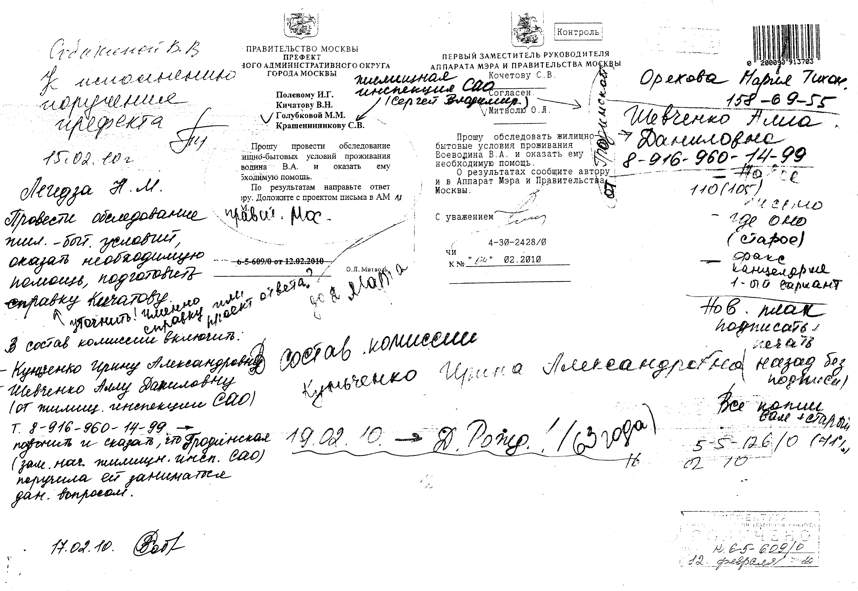 К исполнению
поручения
префекта
15.02.10г
Легедза Н.М.
Провести обследование
жил.-быт. условий,
оказать необходимую
помощь, подготовить
справку Кичатову.
уточнить! именно
справку или
проект ответа?
В состав комиссии включить:
- Кузьченко Ирину Александровну
- Шевченко Аллу Даниловну
(от жилищ. инспекции САО)
т. 8-916-960-14-99 →
позвонить и сказать, что Гродинская
(зам. нач. жилищн. инсп. САО)
поручила ей заниматься
дан. вопросом.
17.02.10.
ПРАВИТЕЛЬСТВО МОСКВЫ
ПРЕФЕКТ
НОГО АДМИНИСТРАТИВНОГО ОКРУГА
ГОРОДА МОСКВЫ
жилищная
инспекция САО
(Сергей Владимир.)
Полевому И.Г.
Кичатову В.Н.
Голубковой М.М.
Крашенинникову С.В.
Прошу провести обследование
ищно-бытовых условий проживания
водина В.А. и оказать ему
бходимую помощь.
По результатам направьте ответ
ру. Доложите с проектом письма в АМ и
прав. Мос.
6-5-609/0 от 12.02.2010
О.Л. Митволь
до 2 марта
В состав комиссии
Ирина Александровна
19.02.10. → Д. Рожд.! (63 года)
Контроль
ПЕРВЫЙ ЗАМЕСТИТЕЛЬ РУКОВОДИТЕЛЯ
АППАРАТА МЭРА И ПРАВИТЕЛЬСТВА МОСКВЫ
Кочетову С.В.
Согласен
Митволю О.Л.
Прошу обследовать жилищно-
бытовые условия проживания
Воеводина В.А. и оказать ему
необходимую помощь.
О результатах сообщите автору
и в Аппарат Мэра и Правительства
Москвы.
С уважением
4-30-2428/0
К №
02.2010
от Гродинской
Орехова Мария Тихон.
158-69-55
Шевченко Алла
Даниловна
8-916-960-14-99
110(105)
письмо
где оно
(старое)
- факс
канцелярия
1-ый вариант
Нов. план
подписать
печать
(назад без
подписи)
Все копии
сам + старый
5-5-126/0
02 10
N. 6-5-609/0
12 февраля 10